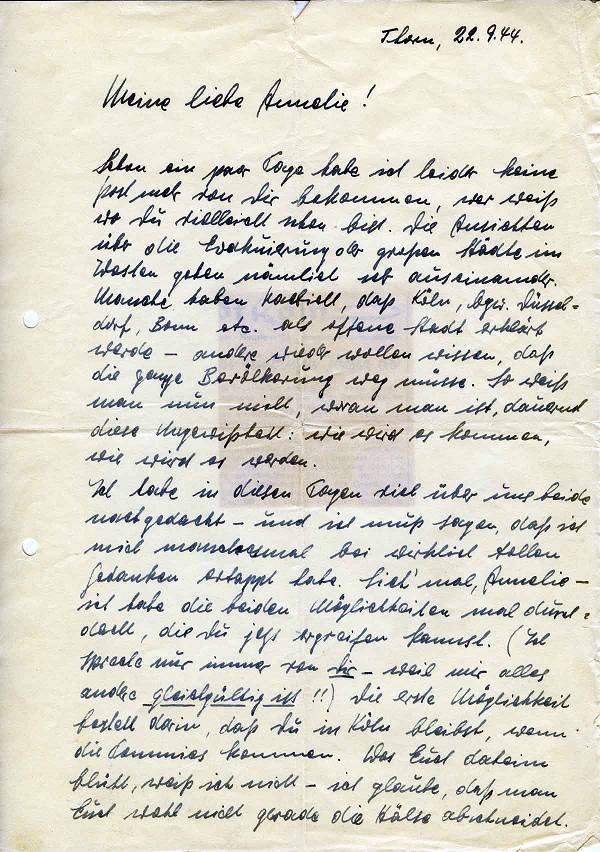 Thorn, 22.9.44.
Meine liebe Annelie!
Schon ein paar Tage habe ich leider keine
Post mehr von Dir bekommen, wer weiß
wo Du vielleicht schon bist. Die Ansichten
über die Evakuierung der großen Städte im
Westen gehen nämlich sehr auseinander.
Manche haben, daß Köln, bezw. Düssel-
dorf, Bonn etc. als offene Stadt erklärt
werde – andere wieder wollen wissen, daß
die ganze Bevölkerung weg müsse. So weiß
man nun nicht, woran man ist, dauernd
diese Ungewißheit: wie wird es kommen,
wie wird es werden.
Ich habe in diesen Tagen viel über uns beide
nachgedacht – und ich muß sagen, daß ich
mich manchesmal bei wirklich tollen
Gedanken ertappt habe. Sieh' mal, Annelie –
ich habe die beiden Möglichkeiten mal durch-
dacht, die Du jetzt ergreifen kannst. (Ich
spreche nur immer von Dir – weil mir alles
andre gleichgültig ist!!) Die erste Möglichkeit
besteht darin, daß Du in Köln bleibst, wenn
die Tommies kommen. Was Euch daheim
blüht, weiß ich nicht – ich glaube, daß man
Euch wohl nicht gerade die Hälse abschneidet.